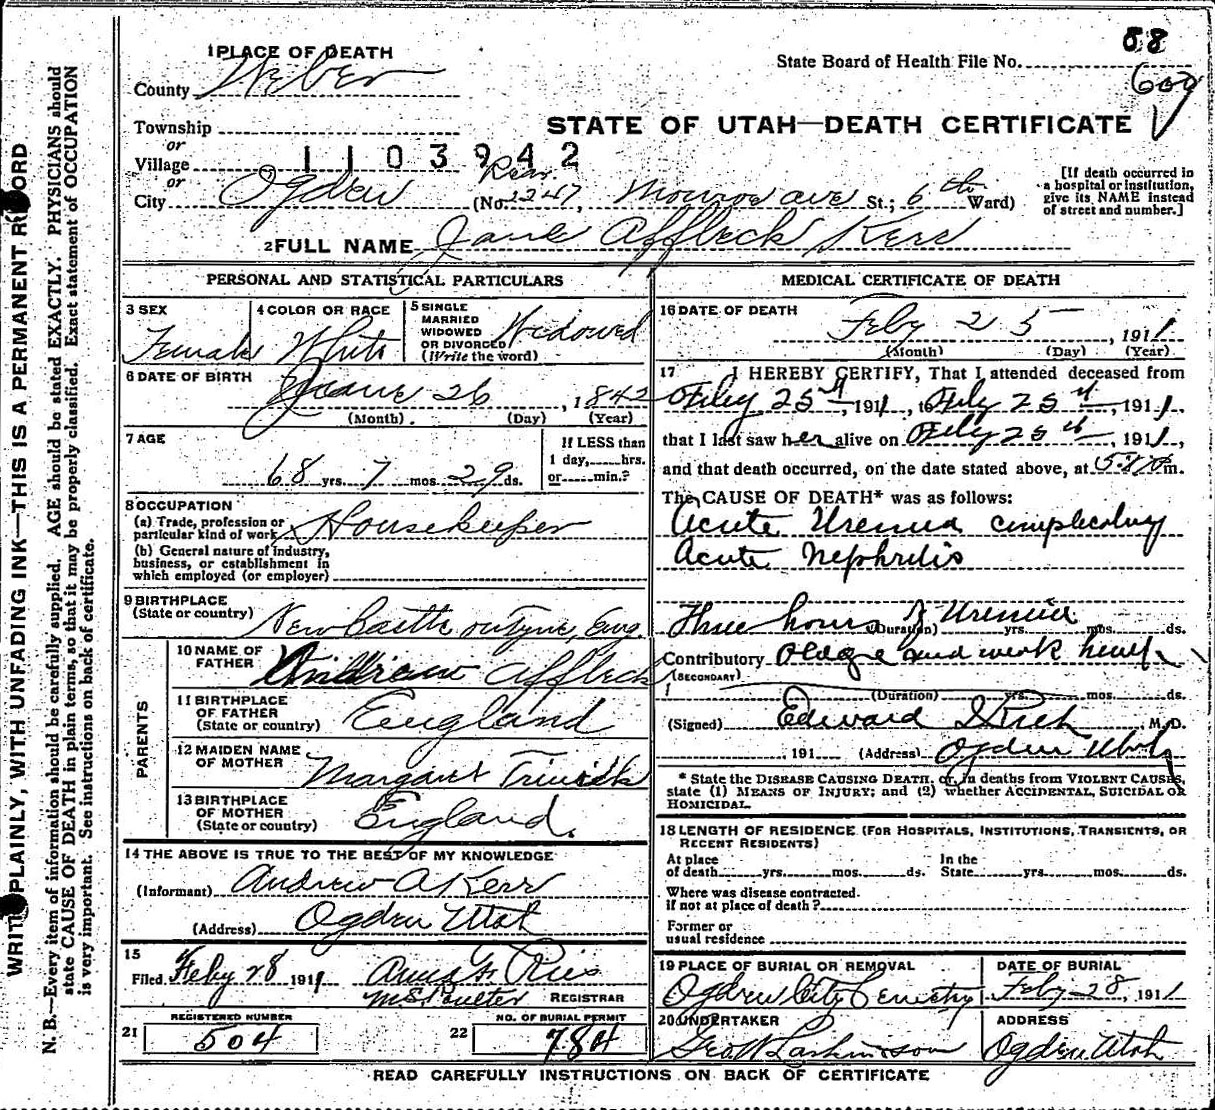 WRITE PLAINLY, WITH UNFADING INK—THIS IS A PERMANENT RECORD
N. B.—Every item of information should be carefully supplied. AGE should be stated EXACTLY. PHYSICIANS should
state CAUSE OF DEATH in plain terms, so that it may be properly classified. Exact statement of OCCUPATION
is very important. See instructions on back of certificate.
88
State Board of Health File No.
609
STATE OF UTAH—DEATH CERTIFICATE
1 PLACE OF DEATH
County Weber
Township
or
Village
1103942
or
City Ogden (No. Rear 2247, Monroe ave St.; 6th Ward)
[If death occurred in
a hospital or institution,
give its NAME instead
of street and number.]
2 FULL NAME Jane Affleck Kerr
PERSONAL AND STATISTICAL PARTICULARS
3 SEX
Female
4 COLOR OR RACE
White
5 SINGLE
MARRIED
WIDOWED
OR DIVORCED
(Write the word)
Widowed
6 DATE OF BIRTH
June 26, 1842
(Month) (Day) (Year)
7 AGE
68 yrs. 7 mos. 29 ds.
If LESS than
1 day,......hrs.
or......min.?
8 OCCUPATION
(a) Trade, profession or
particular kind of work Housekeeper
(b) General nature of industry,
business, or establishment in
which employed (or employer)
9 BIRTHPLACE
(State or country) New Castle on Tyne, Eng.
PARENTS
10 NAME OF
FATHER Affleck
11 BIRTHPLACE
OF FATHER
(State or country) England
12 MAIDEN NAME
OF MOTHER Margaret
13 BIRTHPLACE
OF MOTHER
(State or country) England.
14 THE ABOVE IS TRUE TO THE BEST OF MY KNOWLEDGE
(Informant) Andrew A Kerr
(Address) Ogden Utah
15
Filed Feby 28 1911
REGISTRAR
REGISTERED NUMBER
21 504
NO. OF BURIAL PERMIT
22 784
MEDICAL CERTIFICATE OF DEATH
16 DATE OF DEATH
Feby 25, 1911
(Month) (Day) (Year)
17 I HEREBY CERTIFY, That I attended deceased from
Feby 25th, 1911, to Feby 25th, 1911,
that I last saw her alive on Feby 25th, 1911,
and that death occurred, on the date stated above, at m.
The CAUSE OF DEATH* was as follows:
Acute Uremia complicating
Acute Nephritis
Three hours of Uremia
(Duration) yrs. mos. ds.
Contributory Old age and weak heart
(SECONDARY)
(Duration) yrs. mos. ds.
(Signed) Edward I Rich, M.D.
, 191 (Address) Ogden Utah
* State the DISEASE CAUSING DEATH, or, in deaths from VIOLENT CAUSES,
state (1) MEANS OF INJURY; and (2) whether ACCIDENTAL, SUICIDAL OR
HOMICIDAL.
18 LENGTH OF RESIDENCE (FOR HOSPITALS, INSTITUTIONS, TRANSIENTS, OR
RECENT RESIDENTS)
At place
of death......yrs......mos......ds.
In the
State......yrs......mos......ds.
Where was disease contracted.
if not at place of death?
Former or
usual residence
19 PLACE OF BURIAL OR REMOVAL
Ogden City Cemetry
DATE OF BURIAL
Feby 28, 1911
20 UNDERTAKER
Geo W Larkin
ADDRESS
Ogden Utah
READ CAREFULLY INSTRUCTIONS ON BACK OF CERTIFICATE